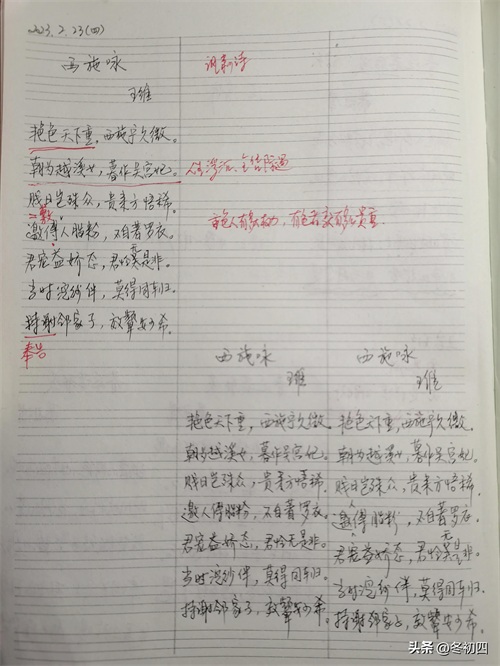 2023.2.23(四)
西施咏
讽刺诗
王维
艳色天下重,西施宁久微。
朝为越溪女,暮作吴宫妃。
人生浮沉、全靠际遇
贱日岂殊众,贵来方悟稀。
邀人傅脂粉,不自著罗衣。
君宠益娇态,君怜无是非。
当时浣纱伴,莫得同车归。
持谢邻家子,效颦安可希。
奉告
西施咏
王维
艳色天下重,西施宁久微。
朝为越溪女,暮作吴宫妃。
贱日岂殊众,贵来方悟稀。
邀人傅脂粉,不自著罗衣。
君宠益娇态,君怜无是非。
当时浣纱伴,莫得同车归。
持谢邻家子,效颦安可希。
西施咏
王维
艳色天下重,西施宁久微。
朝为越溪女,暮作吴宫妃。
贱日岂殊众,贵来方悟稀。
邀人傅脂粉,不自著罗衣。
君宠益娇态,君怜无是非。
当时浣纱伴,莫得同车归。
持谢邻家子,效颦安可希。
头条 @冬初四